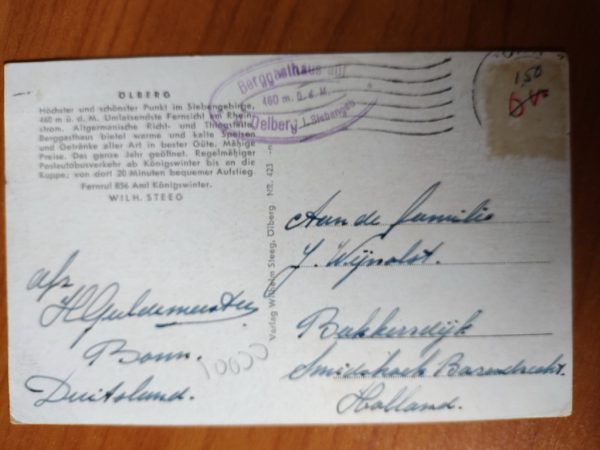 ÖLBERG
Höchster und schönster Punkt im Siebengebirge,
460 m ü. d. M. Umfassendste Fernsicht am Rhein-
strom. Altgermanische Richt- und Thingstätte.
Berggasthaus bietet warme und kalte Speisen
und Getränke aller Art in bester Güte. Mäßige
Preise. Das ganze Jahr geöffnet. Regelmäßiger
Postautobusverkehr ab Königswinter bis an die
Kuppe; von dort 20 Minuten bequemer Aufstieg.
Fernruf 856 Amt Königswinter.
WILH. STEEG
Berggasthaus auf
460 m. ü. d. M.
Oelberg i. Siebengeb.
150
Verlag Wilhelm Steeg, Ölberg NR. 423
Aan de familie
J. Wijnolst.
Bakkersdijk
Smidshoek Barendrecht.
Holland.
afz
H Guldemeester
Bonn.
Duitsland.